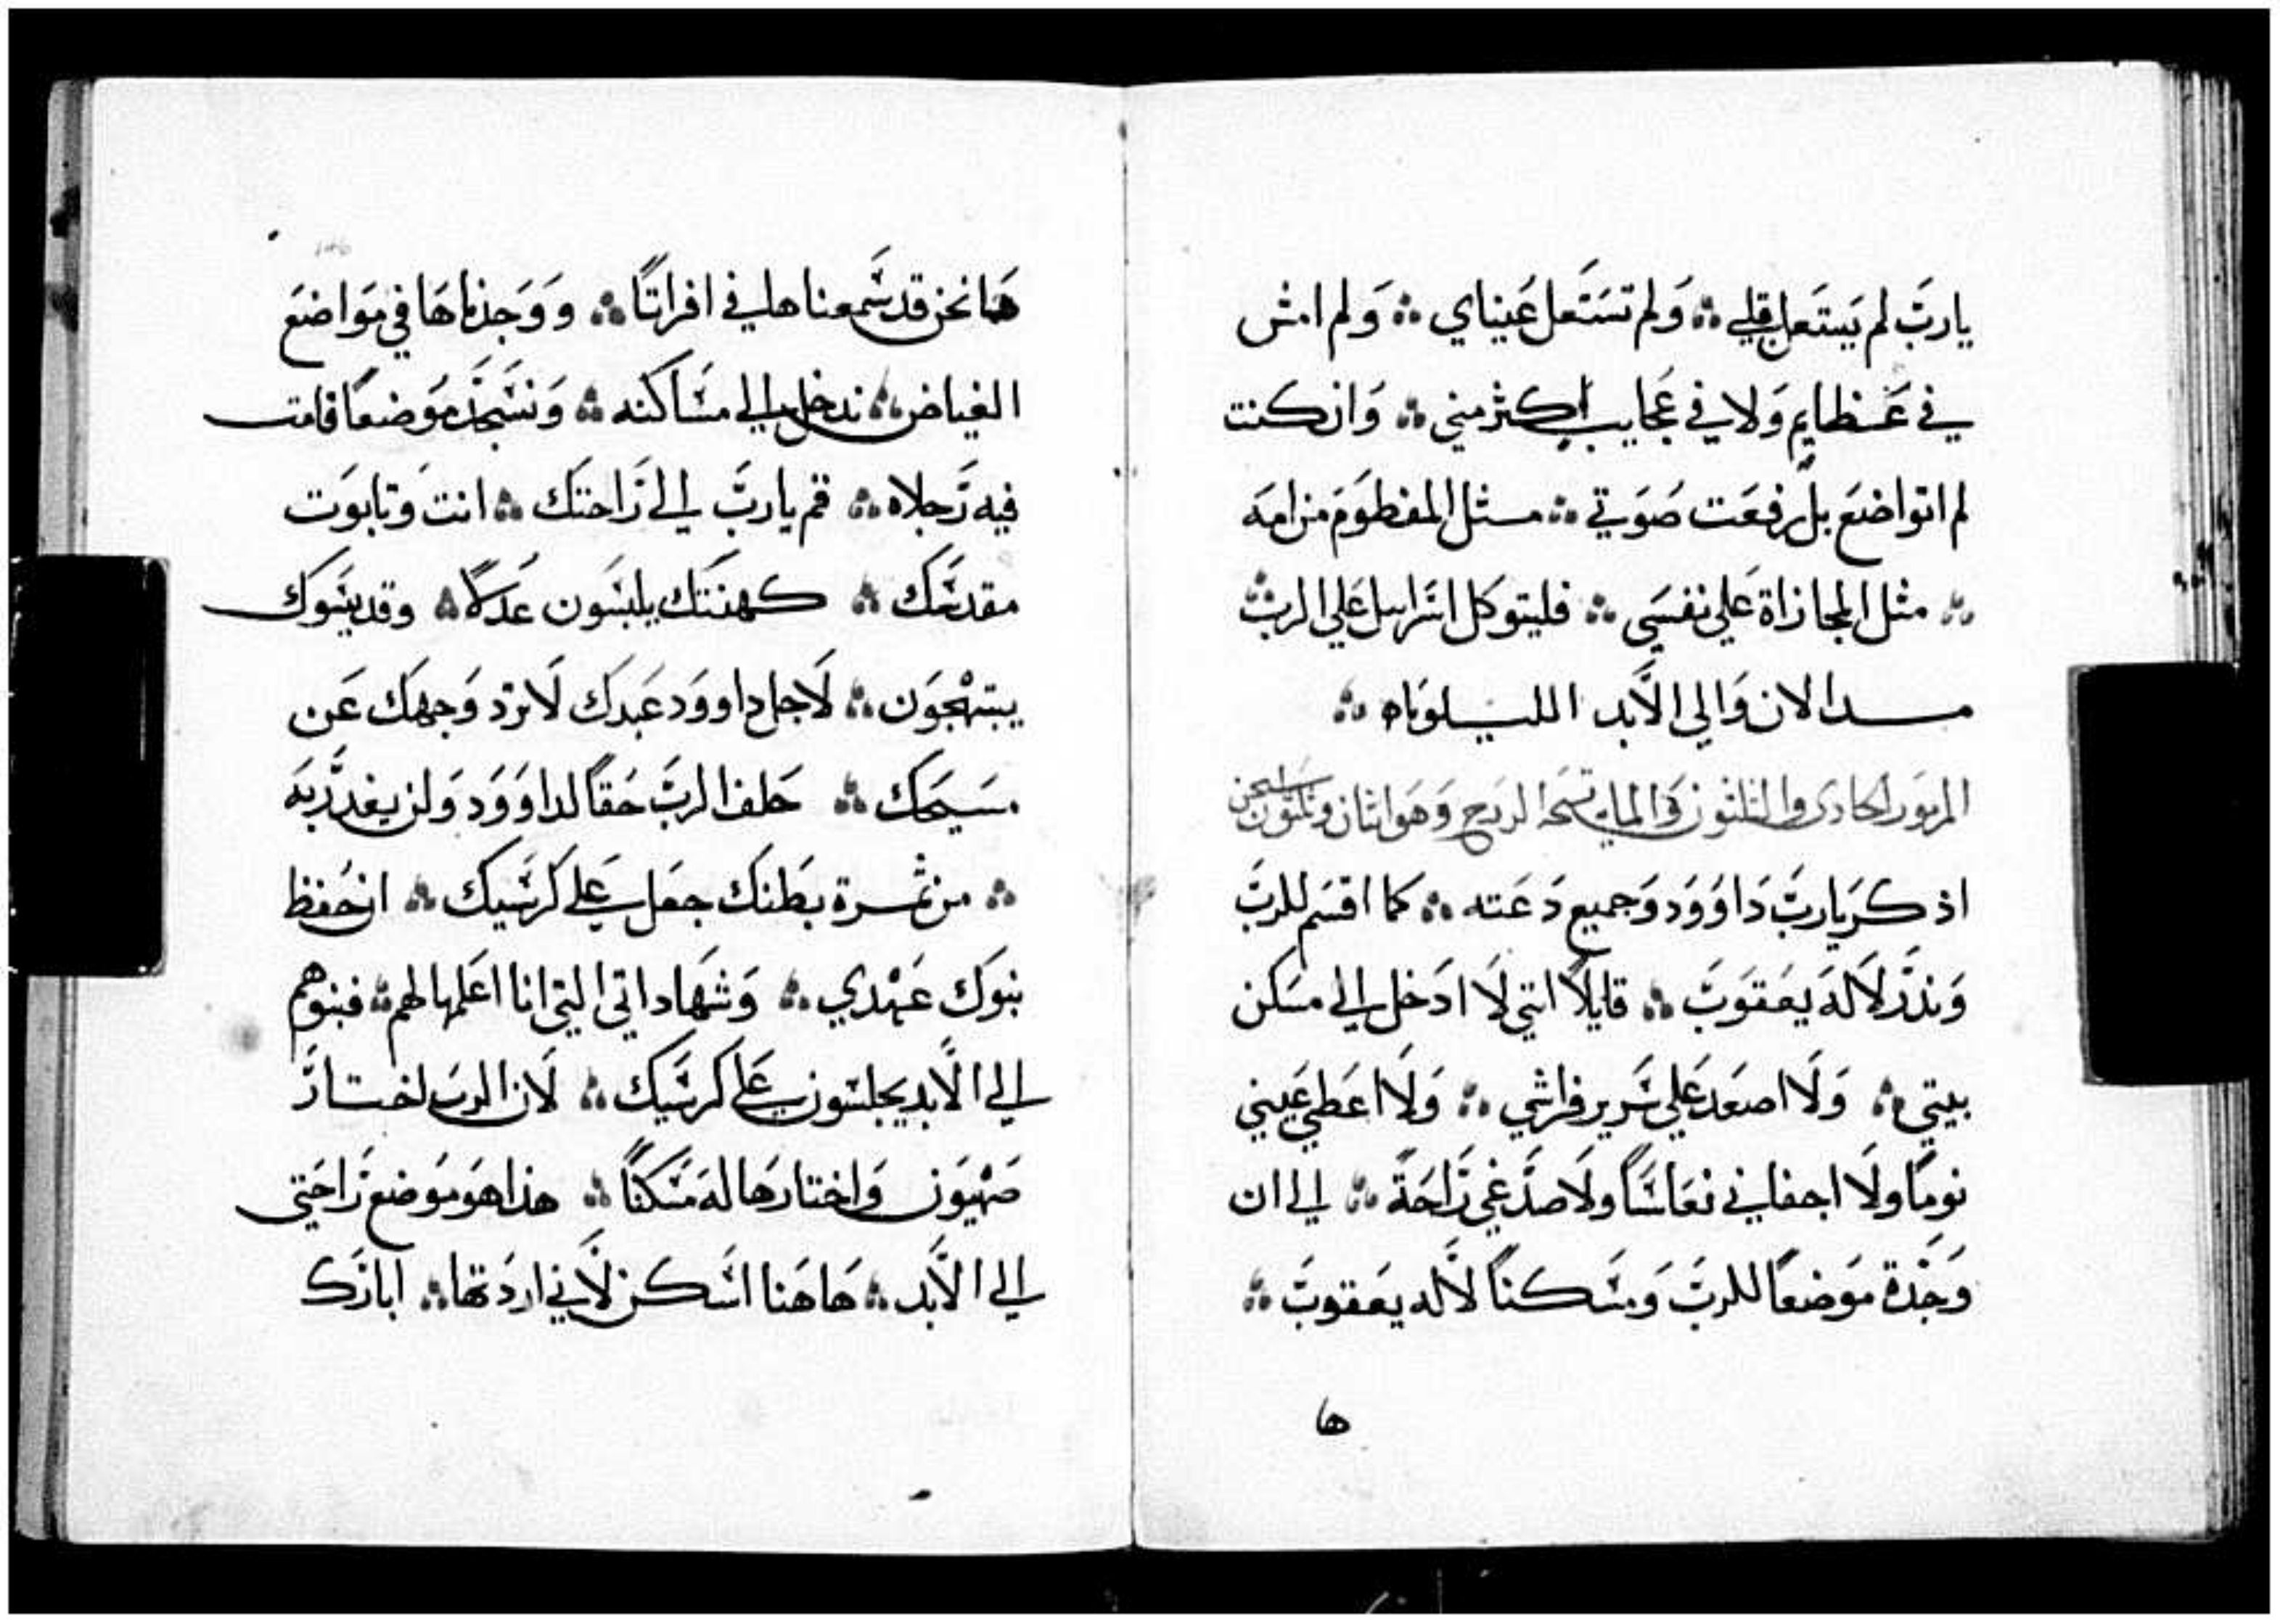 يارب لم يستعل قلبي ۞ ولم تستعل عيناي ۞ ولم امش
في عظايم ولا في عجايب اكثر مني ۞ وان كنت
لم اتواضع بل رفعت صوتي ۞ مثل المفطوم من امه
۞ مثل المجازاة علي نفسي ۞ فليتوكل اسراييل علي الرب
من الان والي الابد الليلوياه ۞
المزمور الحادي والثلثون والمايه تسبحة الدرج وهو اثنان وثلثون
اذكر يارب داوود وجميع دعته ۞ كما اقسم للرب
ونذر لاله يعقوب ۞ قايلا انني لا ادخل الي مسكن
بيتي ۞ ولا اصعد علي سرير فراشي ۞ ولا اعطي عيني
نوما ولا اجفاني نعاسا ولا صدغي راحة ۞ الي ان
وجدة موضعا للرب ومسكنا لاله يعقوب ۞
ها
ها نحن قد سمعنا هاني افراتا ۞ ووجدناها في مواضع
الغياض ۞ ندخل الي مساكنه ۞ ونسجد موضعا قامت
فيه رجلاه ۞ قم يارب الي راحتك ۞ انت وتابوت
مقدسك ۞ كهنتك يلبسون عدلا ۞ وقديسوك
يبتهجون ۞ لاجل داوود عبدك لا ترد وجهك عن
مسيحك ۞ حلف الرب حقا لداوود ولن يغدر به
۞ من ثمرة بطنك جعل علي كرسيك ۞ ان حفظ
بنوك عهدي ۞ وشهاداتي التي انا اعلمها لهم ۞ فبنوهم
الي الابد يجلسون علي كرسيك ۞ لان الرب اختار
صهيون واختارها له مسكنا ۞ هذا هو موضع راحتي
الي الابد ۞ هاهنا اسكن لاني اردتها ۞ ابارك